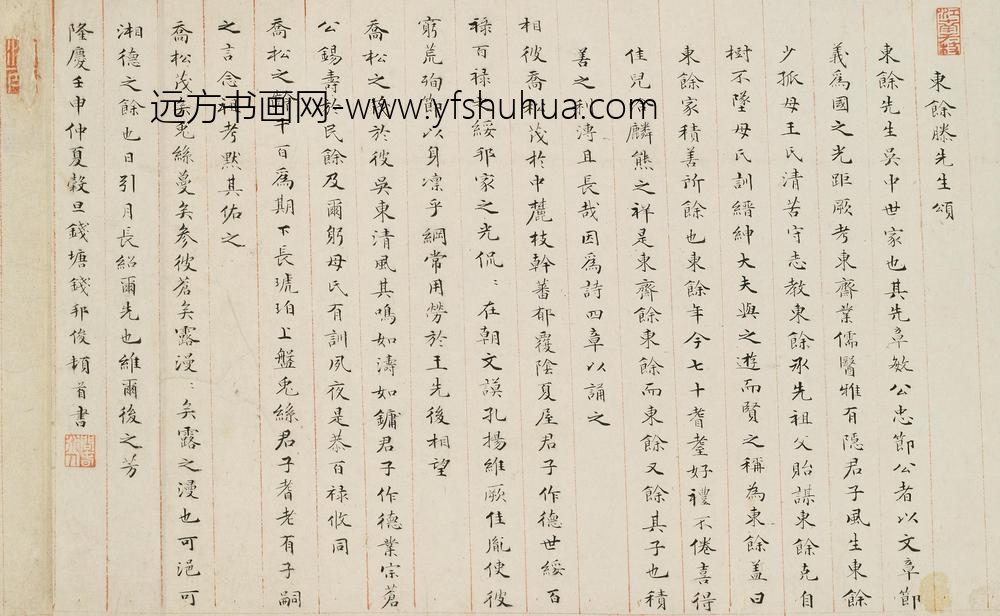 東餘滕先生頌
東餘先生吳中世家也其先章敏公忠節公者以文章節
義爲國之光距厥考東齋業儒醫雅有隱君子風生東餘
少孤母王氏清苦守志教東餘承先祖父貽謀東餘克自
樹不墜母氏訓縉紳大夫與之遊而賢之稱為東餘蓋曰
東餘家積善所餘也東餘年今七十耆耋好禮不倦喜得
佳兒麟熊之祥是東齋餘東餘而東餘又餘其子也積
善之利溥且長哉因爲詩四章以誦之
相彼喬松茂於中麓枝幹蕃郁覆陰夏屋君子作德世綏百
祿百祿綏邦家之光侃:在朝文謨孔揚維厥佳胤使彼
窮荒殉節以身凜乎綱常用勞於王先後相望
喬松之於彼吳東清風其鳴如濤如鏞君子作德業宗蒼
公錫壽於民餘及爾躬母氏有訓夙夜是恭百祿攸同
喬松之齡千百爲期下長琥珀上盤兎絲君子耆老有子嗣
之言念祖考默其佑之
喬松茂矣兎絲蔓矣參彼蒼矣露漫:矣露之漫也可浥可
湘德之餘也日引月長紹爾先也維爾後之芳
隆慶壬申仲夏穀旦錢塘錢邦俊頓首書
远方书画网-www.yfshuhua.com